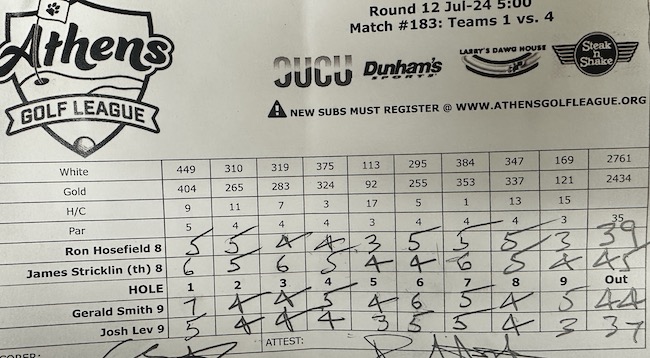 Athens
GOLF LEAGUE
Round 12 Jul-24 5:00
Match #183: Teams 1 vs. 4
OUCU
Dunham's
SPORTS
LARRY'S DAWG HOUSE
Steak
n
Shake
NEW SUBS MUST REGISTER @ WWW.ATHENSGOLFLEAGUE.ORG
White 449 310 319 375 113 295 384 347 169 2761
Gold 404 265 283 324 92 255 353 337 121 2434
H/C 9 11 7 3 17 5 1 13 15
Par 5 4 4 4 3 4 4 4 3 35
Ron Hosefield 8 5 5 4 4 3 5 5 5 3 39
James Stricklin (th) 8 6 5 6 5 4 4 6 5 4 45
HOLE 1 2 3 4 5 6 7 8 9 Out
Gerald Smith 9 7 4 4 5 4 6 5 4 5 44
Josh Lev 9 5 4 4 4 3 5 5 4 3 37
ATTEST: